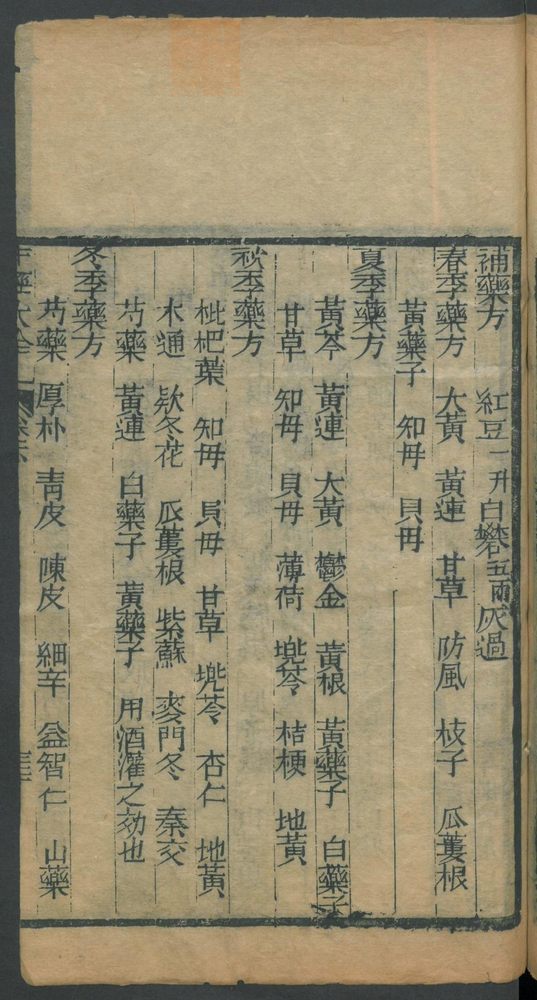 補藥方 紅豆一升白礬五両灰過
春季藥方 大黃 黃連 甘草 防風 枝子 瓜蔞根
黃藥子 知母 貝母
夏季藥方
黃芩 黃連 大黃 鬱金 黃根 黃藥子 白藥子
甘草 知母 貝母 薄荷 兠苓 桔梗 地黃
秋季藥方
枇杷葉 知母 貝母 甘草 兠苓 杏仁 地黃
木通 欵冬花 瓜蔞根 紫蘇 麥門冬 秦交
芍藥 黃連 白藥子 黃藥子 用酒灌之効也
冬季藥方
芍藥 厚朴 青皮 陳皮 細辛 益智仁 山藥